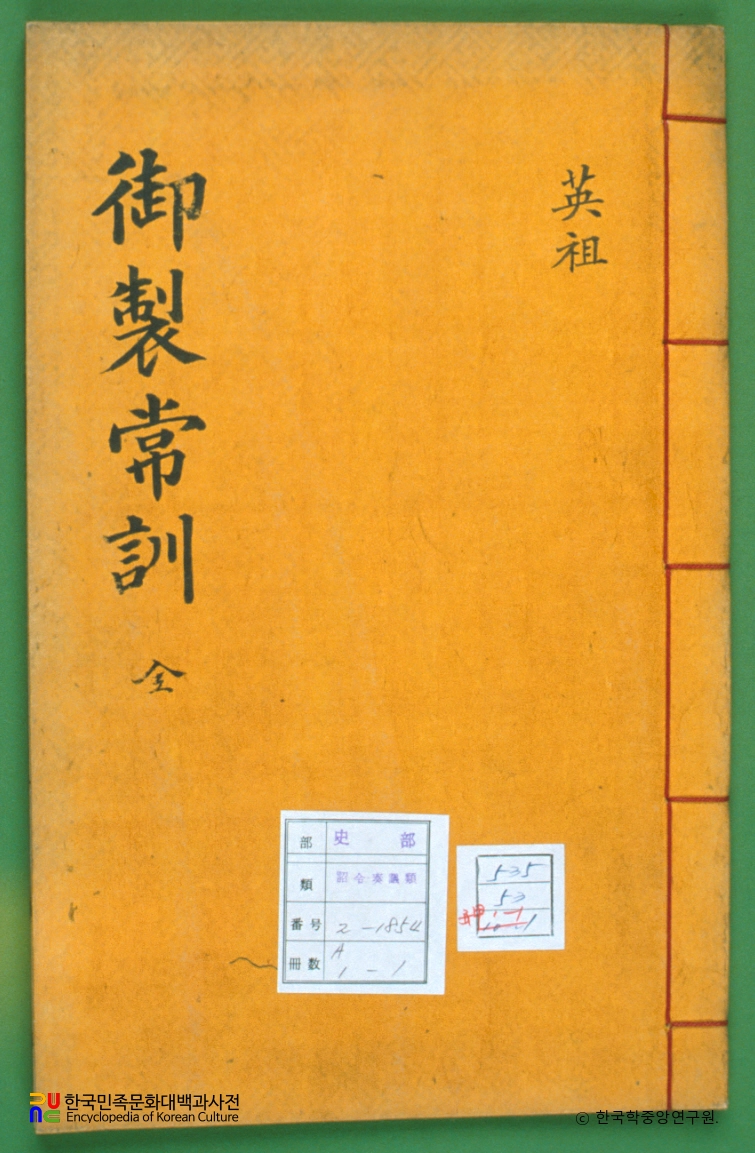 英祖
御製常訓 全
部 史部
類 詔令奏議類
番号 2-1854
冊数 A 1-1
535
53
한국민족문화대백과사전
Encyclopedia of Korean Culture
© 한국학중앙연구원.